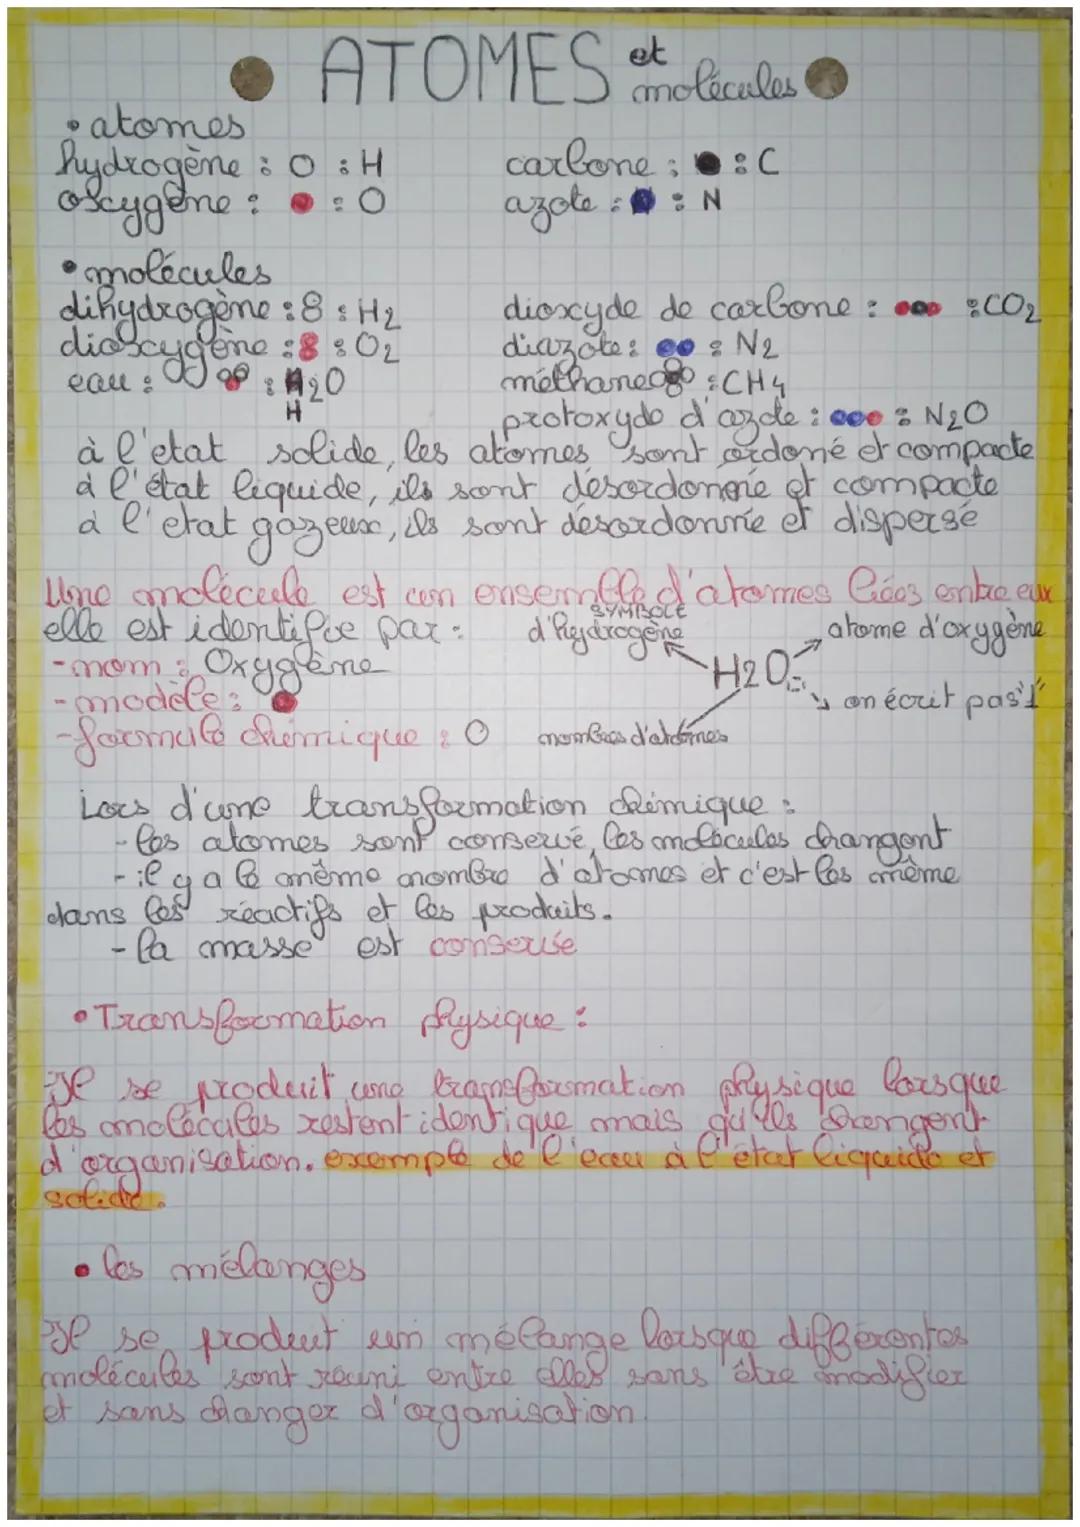 ATOMES et molécules
• atomes
hydrogène : O : H
carbone : : C
oxygène : : O
azote : : N
• molécules
dihydrogène : 8 : H2
dioxyde de carbone : : CO2
dioxygène : 8 : O2
diazote : : N2
eau : : H2O
H
méthane : CH4
protoxyde d'azote : : N2O
à l'etat solide, les atomes sont ordoné et compacte
à l'état liquide, ils sont désordonné et compacte
à l'etat gazeux, ils sont désordonné et dispersé
Une molécule est un ensemble d'atomes liées entre eux
elle est identifie par :
SYMBOLE
d'hydrogène
atome d'oxygène
- nom : Oxygène
H2O
- modèle :
on écrit pas "1"
- formule chimique : O
nombres d'atomes
Lors d'une transformation chimique :
- les atomes sont conservé, les molécules changent
- il y a le même nombre d'atomes et c'est les même
dans les réactifs et les produits.
- la masse est conservé
• Transformation physique :
Il se produit une transformation physique lorsque
les molécules restent identique mais qu'ils changent
d'organisation. exemple de l'eau à l'état liquide et
solide.
• les mélanges
Il se produit un mélange lorsque différentes
molécules sont réuni entre elles sans être modifier
et sans changer d'organisation.